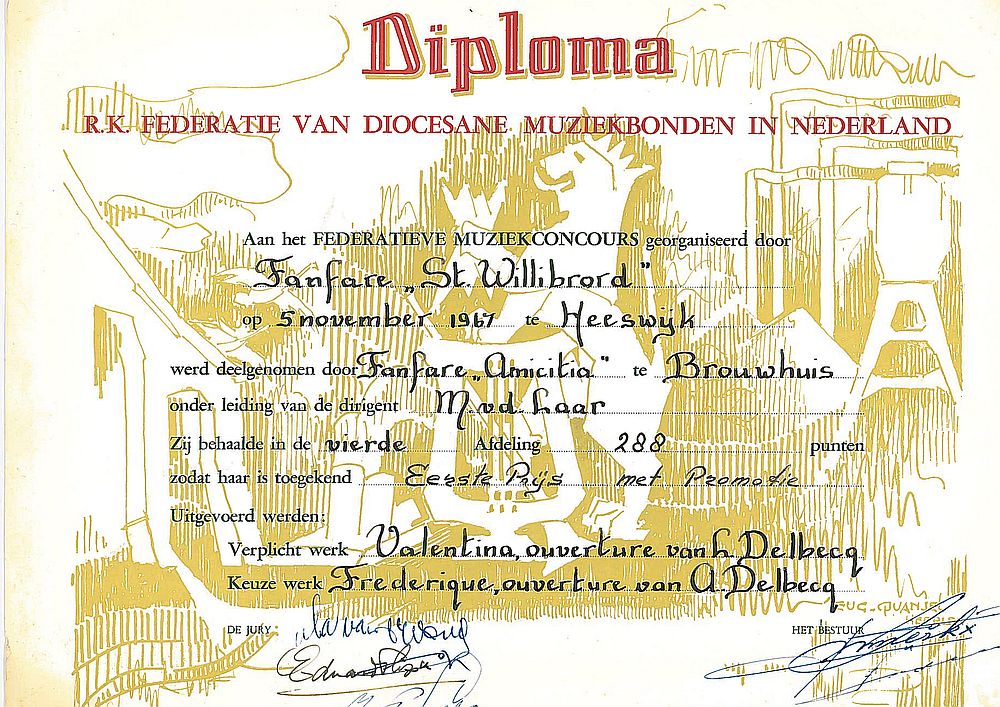 Diploma
R.K. FEDERATIE VAN DIOCESANE MUZIEKBONDEN IN NEDERLAND
Aan het FEDERATIEVE MUZIEKCONCOURS georganiseerd door
Fanfare „St. Willibrord"
op 5 november 1967 te Heeswijk
werd deelgenomen door Fanfare „Amicitia" te Brouwhuis
onder leiding van de dirigent M. v.d. Laar
Zij behaalde in de vierde Afdeling 288 punten
zodat haar is toegekend Eerste Prijs met Promotie
Uitgevoerd werden:
Verplicht werk Valentina, ouverture van L. Delbecq
Keuze werk Frederique, ouverture van A. Delbecq
EUG. QUANJEL
DE JURY HET BESTUUR